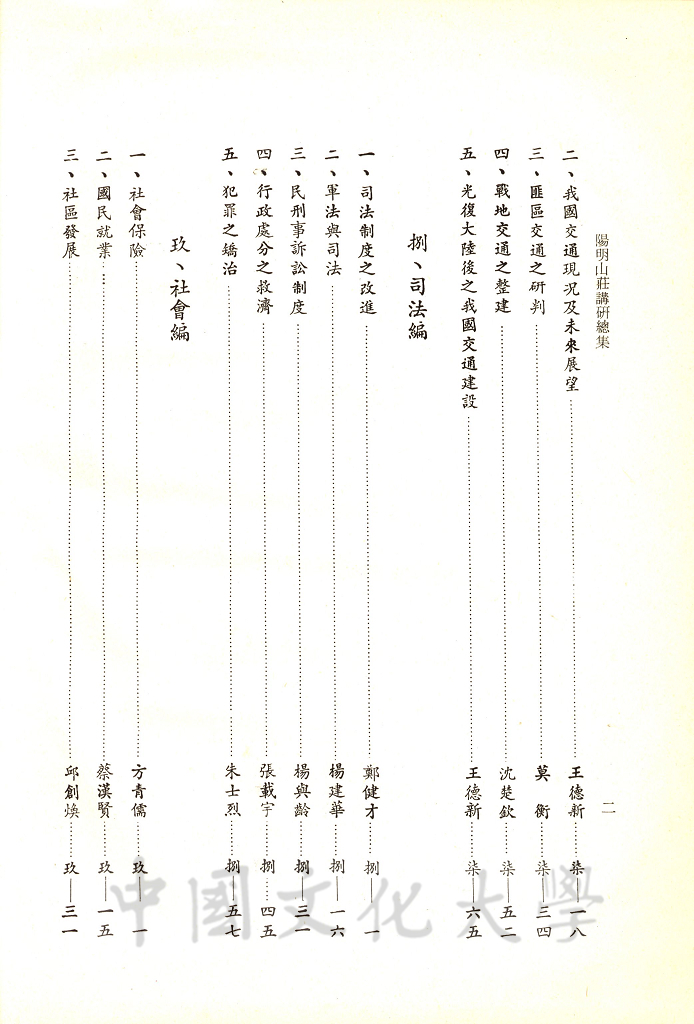 陽明山莊講研總集
二
二、我國交通現況及未來展望……王德新……柒——一八
三、匪區交通之研判……莫 衡……柒——三四
四、戰地交通之整建……沈楚欽……柒——五二
五、光復大陸後之我國交通建設……王德新……柒——六五
捌、司法編
一、司法制度之改進……鄭健才……捌——一
二、軍法與司法……楊建華……捌——一六
三、民刑事訴訟制度……楊與齡……捌——三一
四、行政處分之救濟……張載宇……捌……四五
五、犯罪之矯治……朱士烈……捌——五七
玖、社會編
一、社會保險……方青儒……玖——一
二、國民就業……蔡漢賢……玖——一五
三、社區發展……邱創煥……玖——三一
中國文化大學